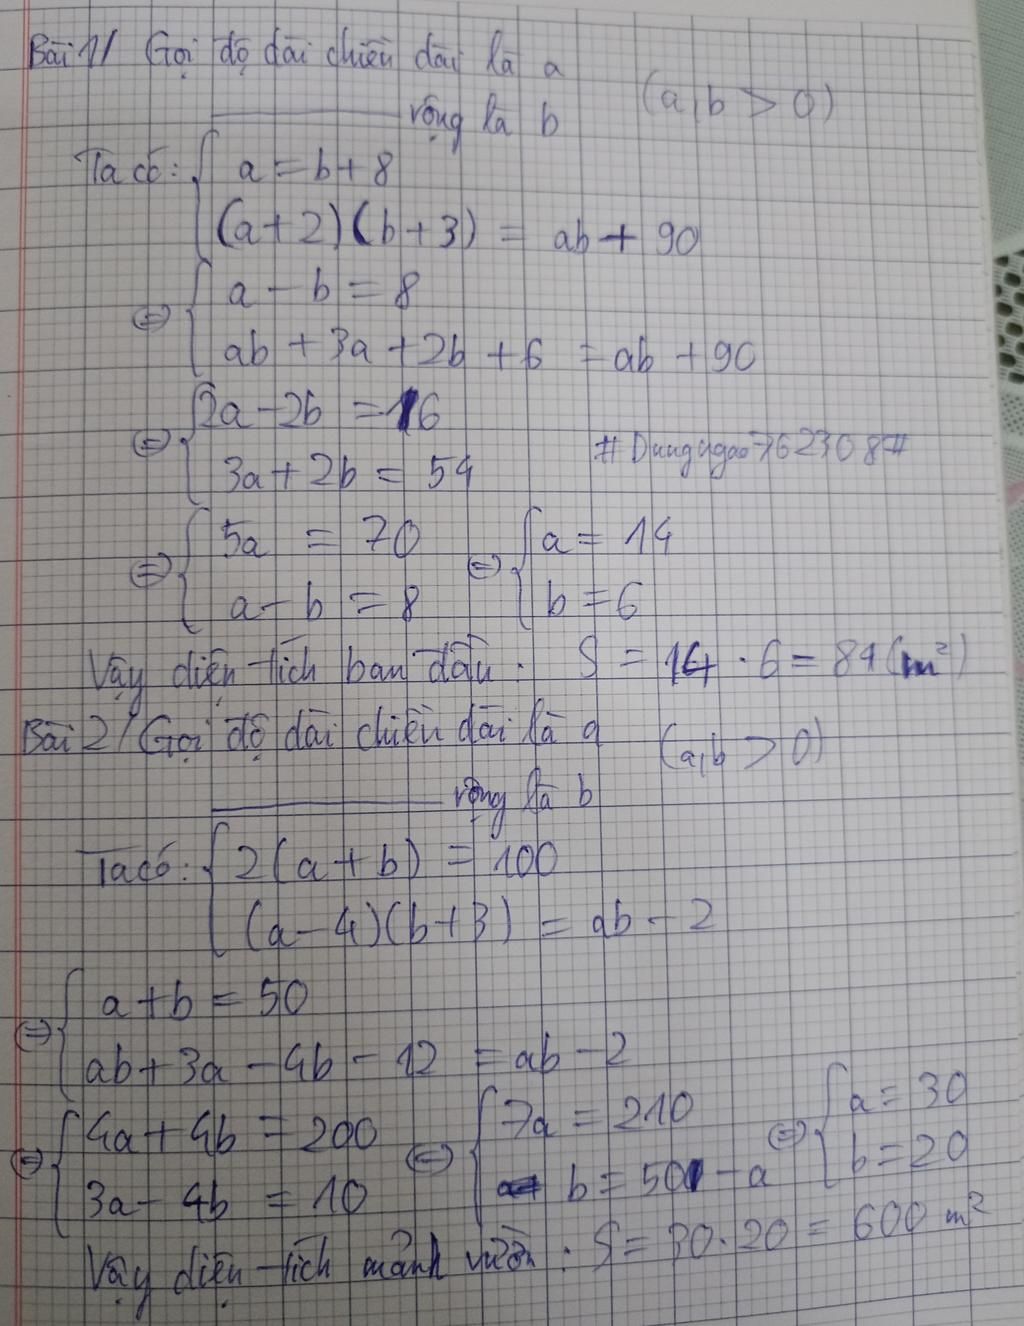 Bài 1/ Gọi độ dài chiều dài là a
(a,b > 0)
rộng là b
Ta có: { a = b + 8
(a + 2)(b + 3) = ab + 90
⇔ { a - b = 8
ab + 3a + 2b + 6 = ab + 90
⇔ { 2a - 2b = 16
3a + 2b = 54
#Dungngao762308#
⇔ { 5a = 70
a - b = 8
⇔ { a = 14
b = 6
Vậy diện tích ban đầu: S = 14 . 6 = 84 (m²)
Bài 2/ Gọi độ dài chiều dài là a
(a,b > 0)
rộng là b
Ta có: { 2(a + b) = 100
(a - 4)(b + 3) = ab - 2
⇔ { a + b = 50
ab + 3a - 4b - 12 = ab - 2
⇔ { 4a + 4b = 200
3a - 4b = 10
⇔ { 7a = 210
b = 50 - a
⇔ { a = 30
b = 20
Vậy diện tích mảnh vườn: S = 30 . 20 = 600 m²